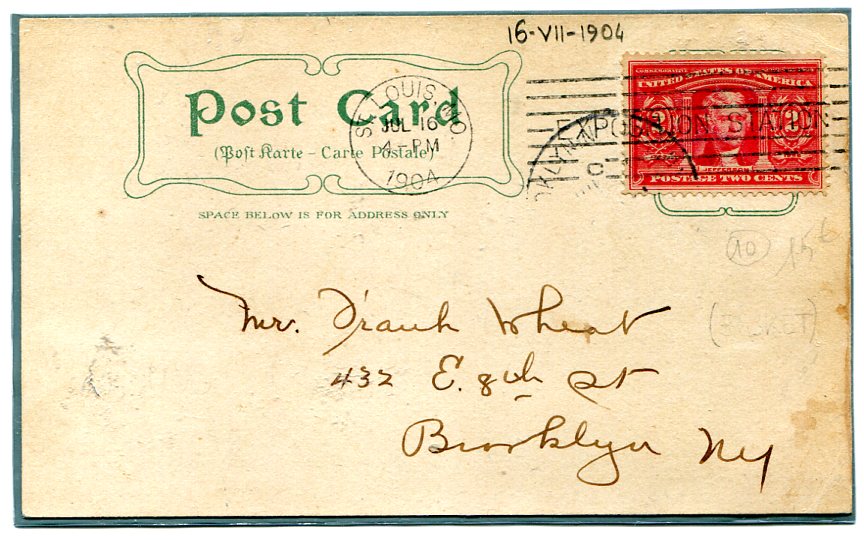 16-VII-1904
UNITED STATES OF AMERICA
2 2
JEFFERSON
POSTAGE TWO CENTS
EXPOSITION STATION
ST. LOUIS, MO.
JUL 16
4-PM
1904
Post Card
(Post Karte – Carte Postale)
SPACE BELOW IS FOR ADDRESS ONLY
10
Mr. Frank Wheat
432 E. 8th St
Brooklyn NY